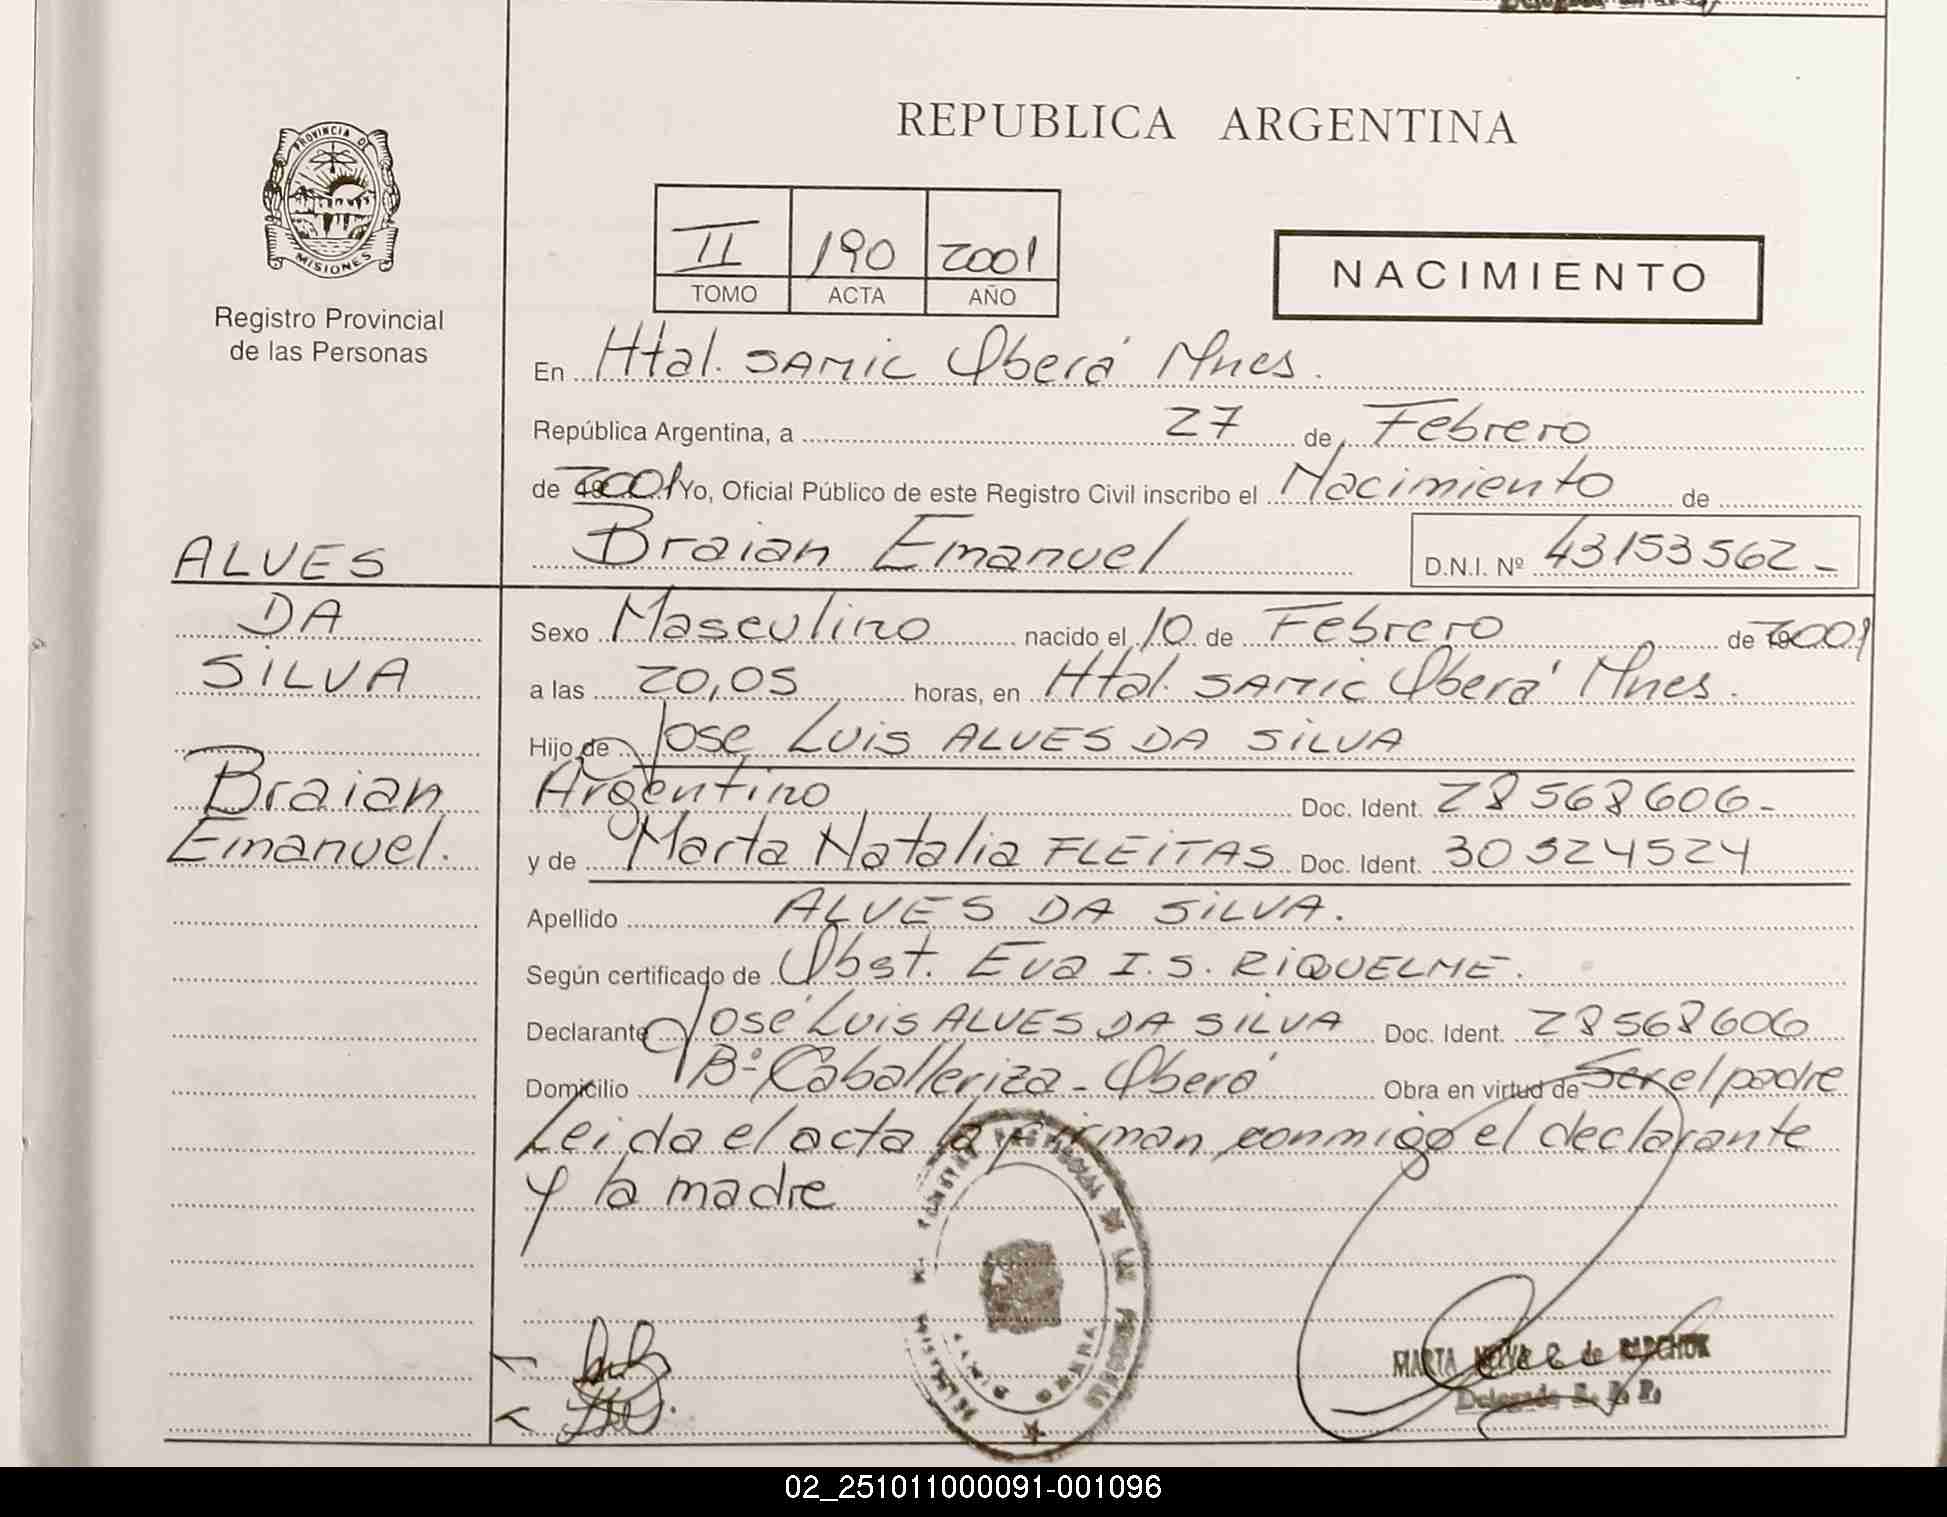 PROVINCIA DE
MISIONES
Registro Provincial
de las Personas
ALVES
DA
SILVA
Braian
Emanuel.
REPUBLICA ARGENTINA
II 190 2001
TOMO ACTA AÑO
NACIMIENTO
En Htal. SAMIC Oberá Mnes.
República Argentina, a 27 de Febrero
de 2001 Yo, Oficial Público de este Registro Civil inscribo el Nacimiento de
Braian Emanuel D.N.I. Nº 43153562-
Sexo Masculino nacido el 10 de Febrero de 2001
a las 20,05 horas, en Htal. SAMIC Oberá Mnes.
Hijo de Jose Luis ALVES DA SILVA
Argentino Doc. Ident. 28568606-
y de Marta Natalia FLEITAS Doc. Ident. 30324524
Apellido ALVES DA SILVA.
Según certificado de Obst. Eva I. S. RIQUELME.
Declarante José Luis ALVES DA SILVA Doc. Ident. 28568606
Domicilio Bº Caballeriza - Oberá Obra en virtud de Ser el padre
Leida el acta la firman conmigo el declarante
y la madre
MARTA de
Delegada R. P. P.
02_251011000091-001096